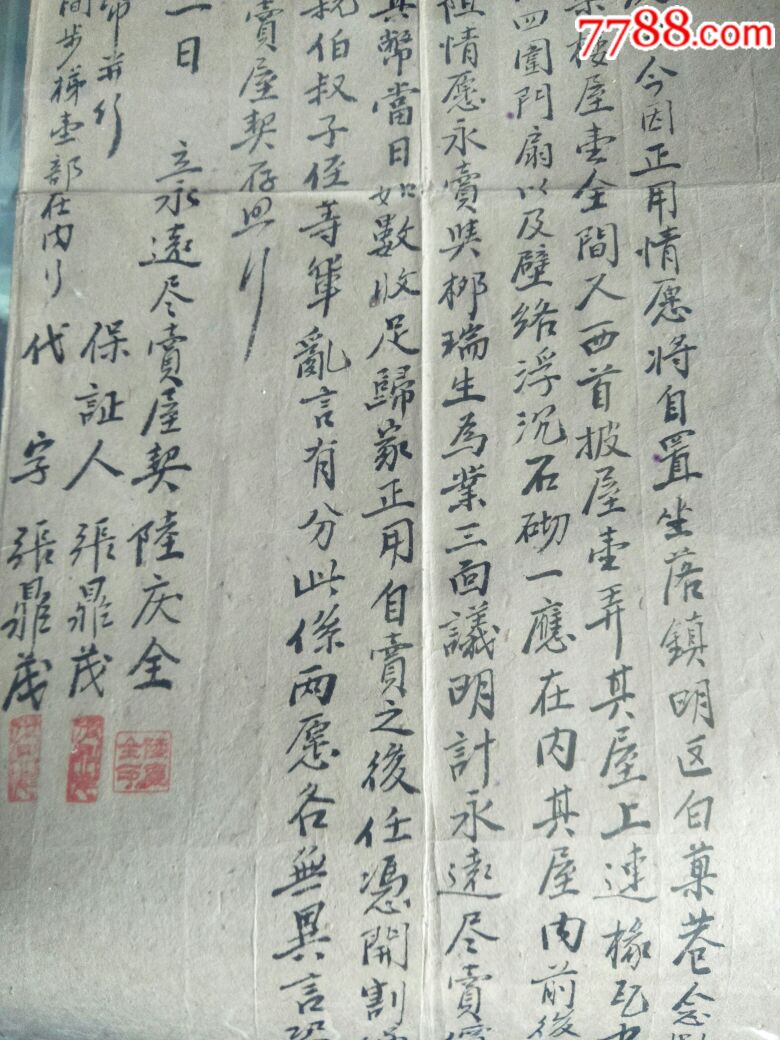 7788.com
今因正用情愿将自置坐落鎮明区白菓巷念
樓屋壹全間又西首披屋壹弄其屋上連椽瓦
四圍門扇以及壁络浮沉石砌一應在内其屋内前後
阻情愿永賣與栁瑞生為業三面議明計永遠尽賣
其幣當日如數收足歸家正用自賣之後任憑開割
叔伯叔子侄等輩亂言有分此係两愿各無異言
賣屋契存照
一日
立永遠尽賣屋契 陸庆全
保証人 張鼎茂
代字 張鼎茂
步梯壹部在内